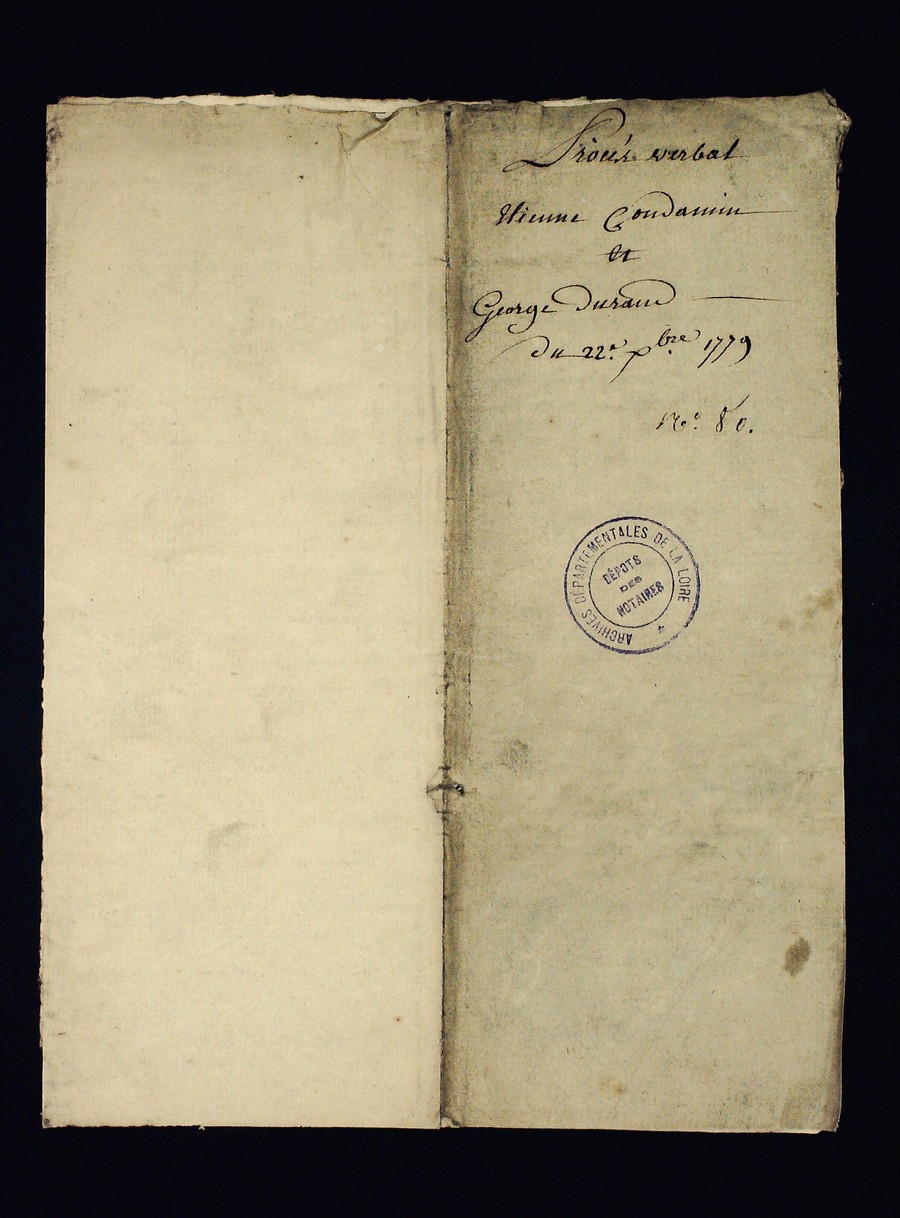 Procés verbal
Etienne Condamin
et
George Durand
du 22e. xbre 1779
No. 80.
ARCHIVES DÉPARTEMENTALES DE LA LOIRE
DÉPOTS
DES
NOTAIRES